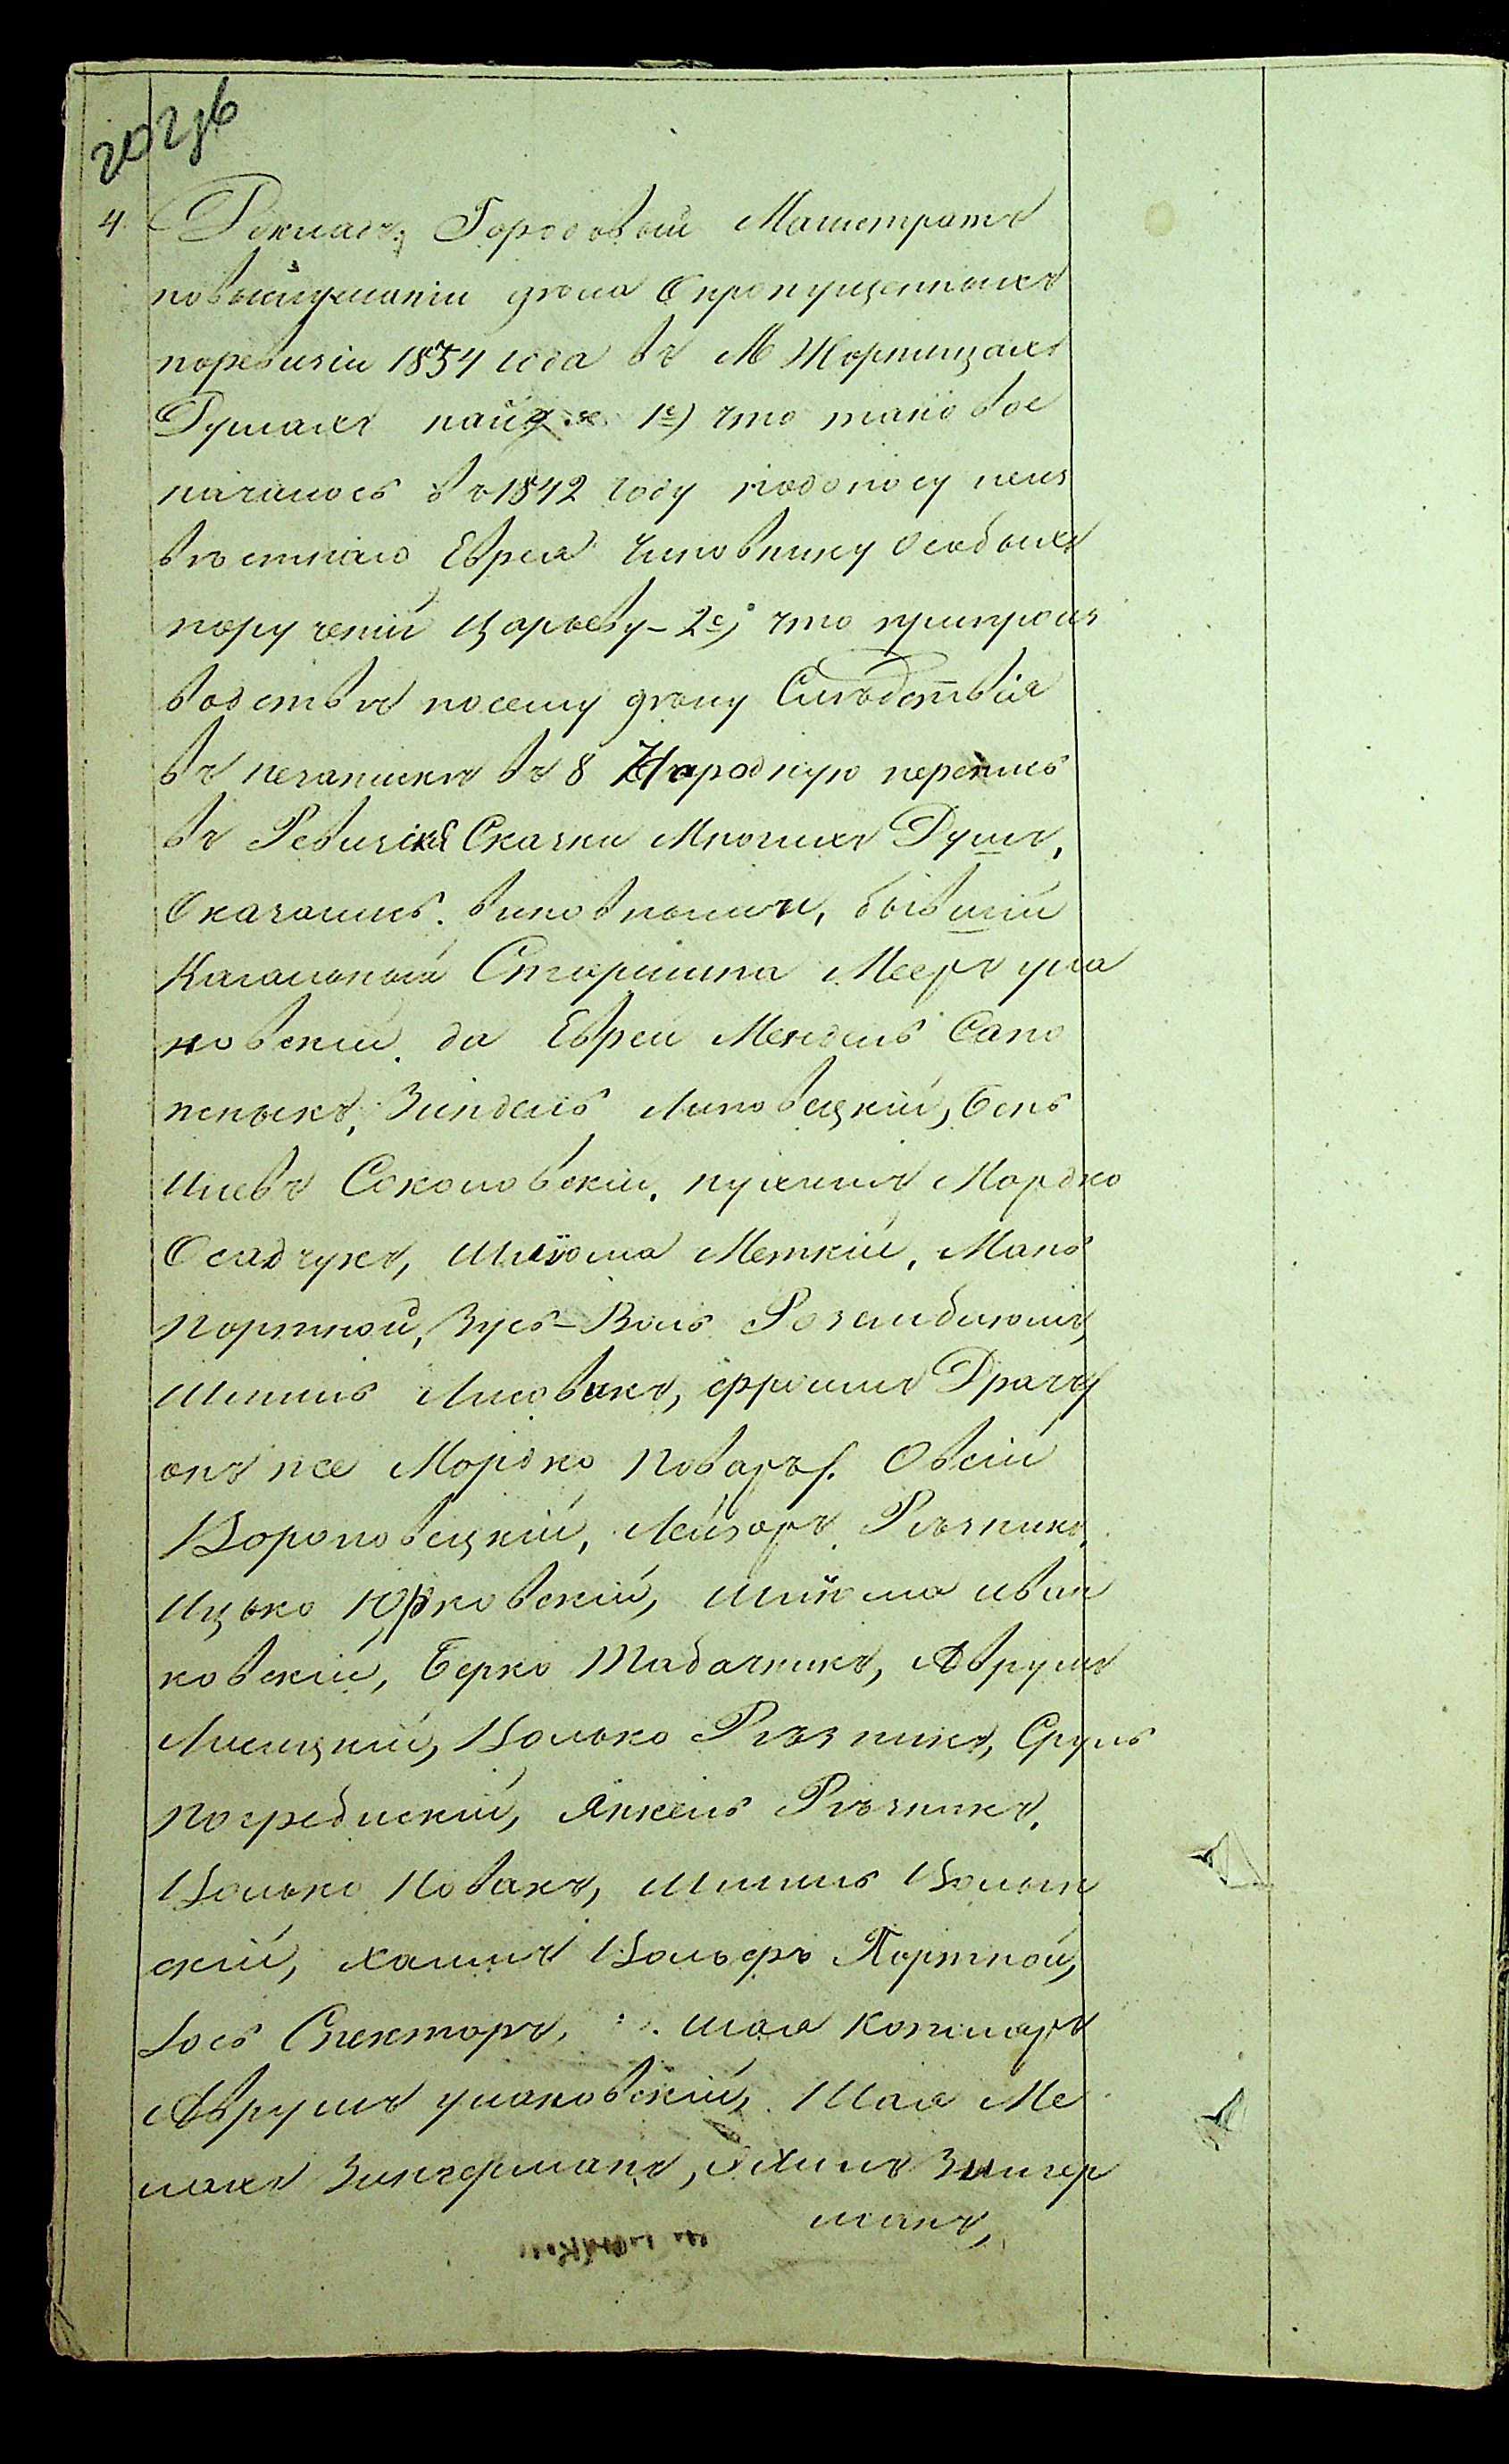 202 зв
4. Реклась, Городовый Магистратъ
повыслушаніи дѣла Опропущенныхъ
поревизіи 1834 года въ М Жорнищахъ
Душахъ найде 1е) что таковое
началось въ 1842 году подоносу неиз
вѣстнаго Еврея Чиновнику Особыхъ
порученій Царьеву – 2е, что припроиз
водствѣ посему дѣлу Слѣдствія
въ незапискѣ въ 8 Народную перепись
въ Ревизкія Сказки Многихъ Душъ,
Оказались виновными, бывшій
Кагальный Старшина Мееръ ула
новскій да Евреи Мендель Сапо
жныкъ, Зиндель Липовецкій, Бень
Шлевъ Соколовскій, пухимъ Мордко
Осадчукъ, Шлёома Меткій, Мань
портной, Зусь–Воль Розенблюмъ,
Шмиль Лисовакъ, Фроимъ Драчъ
онъ же Мордко поваръ. Овсій
Вороновецкій, Лейзоръ Рѣзникъ,
Ицько Юрковскій, Шлёома иван
ковскій, Берко Табачникъ, Аврумъ
Лисицкій, Волько Рѣзникъ, Сруль
погребискій, Янкель Рѣзникъ,
Волько Новакъ, Шмиль Волын
скій, Хаимъ Вольфъ Портной,
Іось Спекторъ, Шая Котляръ
Аврумъ улановскій, Шая Ме
лахъ Зингерманъ, Хиль Зингер
манъ,